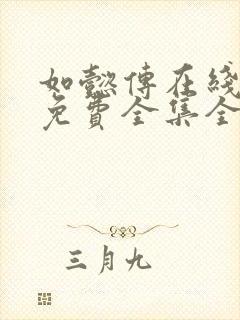 如懿传在线
免費全集全
三月九